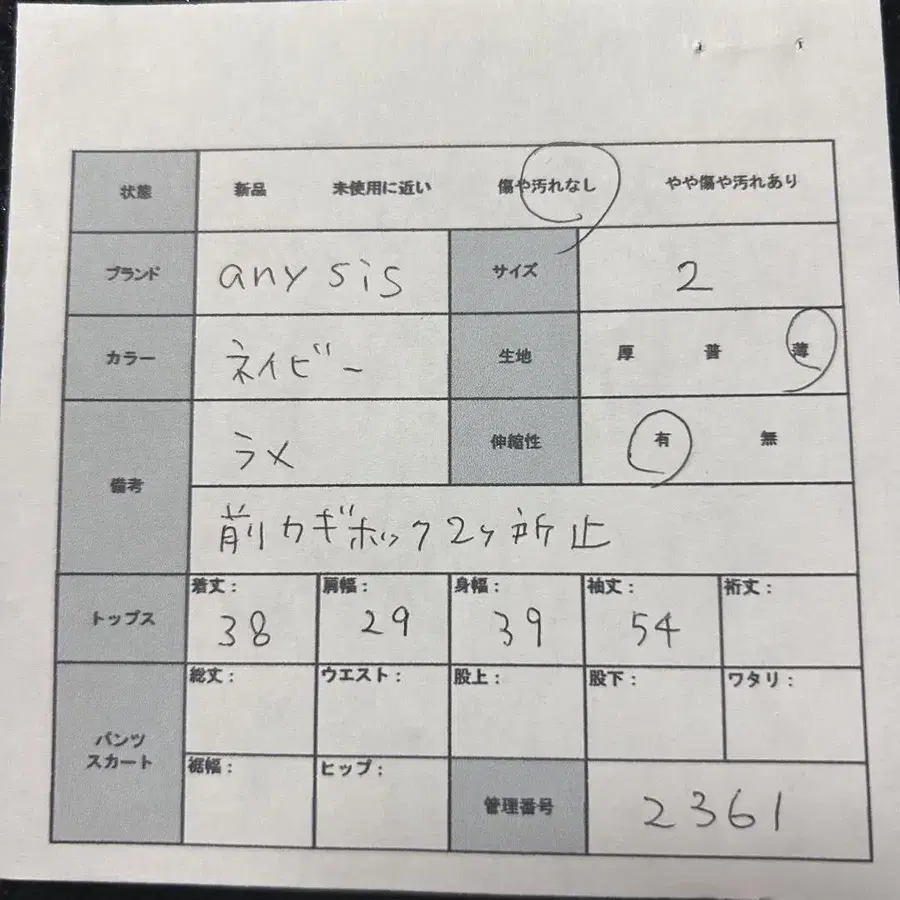 状態 新品 未使用に近い 傷や汚れなし やや傷や汚れあり
ブランド any sis サイズ 2
カラー ネイビー 生地 厚 普 薄
備考 ラメ 伸縮性 有 無
前カギホック2ヶ所止
トップス 着丈: 38 肩幅: 29 身幅: 39 袖丈: 54 裄丈:
パンツ スカート 総丈: ウエスト: 股上: 股下: ワタリ:
裾幅: ヒップ: 管理番号 2361